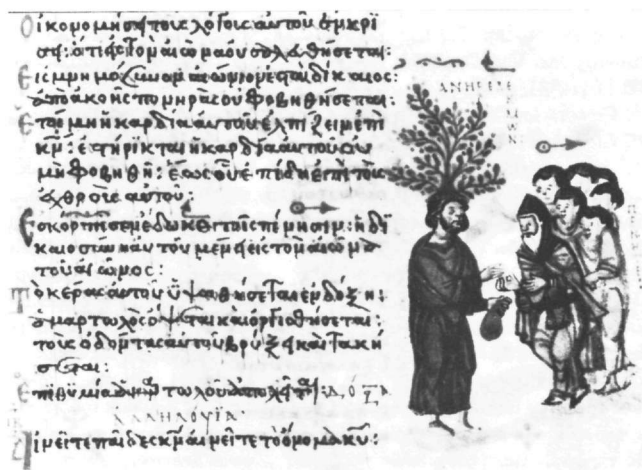 Οἰκονομήσει τοὺς λόγους αὐτοῦ ἐν κρί
σει: ὅτι εἰς τὸν αἰῶνα οὐ σαλευθήσεται:
Εἰς μνημόσυνον αἰώνιον ἔσται δίκαιος:
ἀπὸ ἀκοῆς πονηρᾶς οὐ φοβηθήσεται:
Ἑτοίμη ἡ καρδία αὐτοῦ ἐλπίζειν ἐπὶ
κν: ἐστήρικται ἡ καρδία αὐτοῦ οὐ
μὴ φοβηθῇ: ἕως οὗ ἐπίδῃ ἐπὶ τοὺς
ἐχθροὺς αὐτοῦ:
Ἐσκόρπισεν ἔδωκεν τοῖς πένησιν: ἡ δι
καιοσύνη αὐτοῦ μένει εἰς τὸν αἰῶνα
τοῦ αἰῶνος:
Τὸ κέρας αὐτοῦ ὑψωθήσεται ἐν δόξῃ:
ἁμαρτωλὸς ὄψεται καὶ ὀργισθήσεται:
τοὺς ὀδόντας αὐτοῦ βρύξει καὶ τακή
σεται:
Ἐπιθυμία ἁμαρτωλοῦ ἀπολεῖται:
ΑΛΛΗΛΟΥΪΑ
Αἰνεῖτε παῖδες κν αἰνεῖτε τὸ ὄνομα κυ: